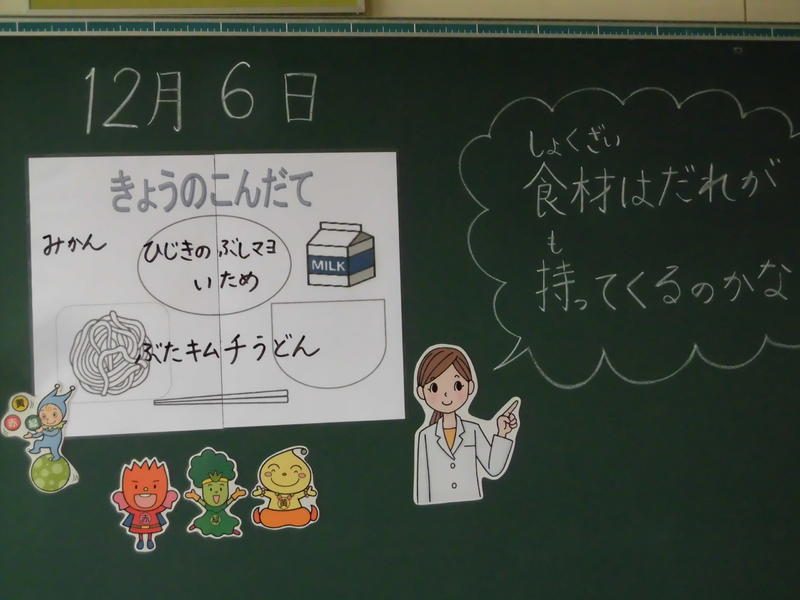 12月6日
きょうのこんだて
みかん
ひじきのぶしマヨ
いため
MILK
ぶたキムチうどん
しょくざい
食材はだれが
も
持ってくるのかな
黄
赤
緑
赤
緑
黄